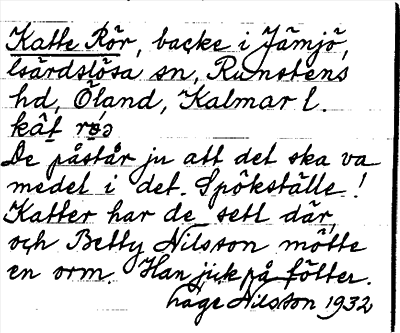 Katte Rör, backe i Jämjö,
Gårdslösa sn, Runstens
hd, Öland, Kalmar l.
De påstår ju att det ska va
medel i det. Spökställe!
Katter har de sett där,
och Betty Nilsson mötte
en orm. Han jick på fötter.
Nilsson 1932